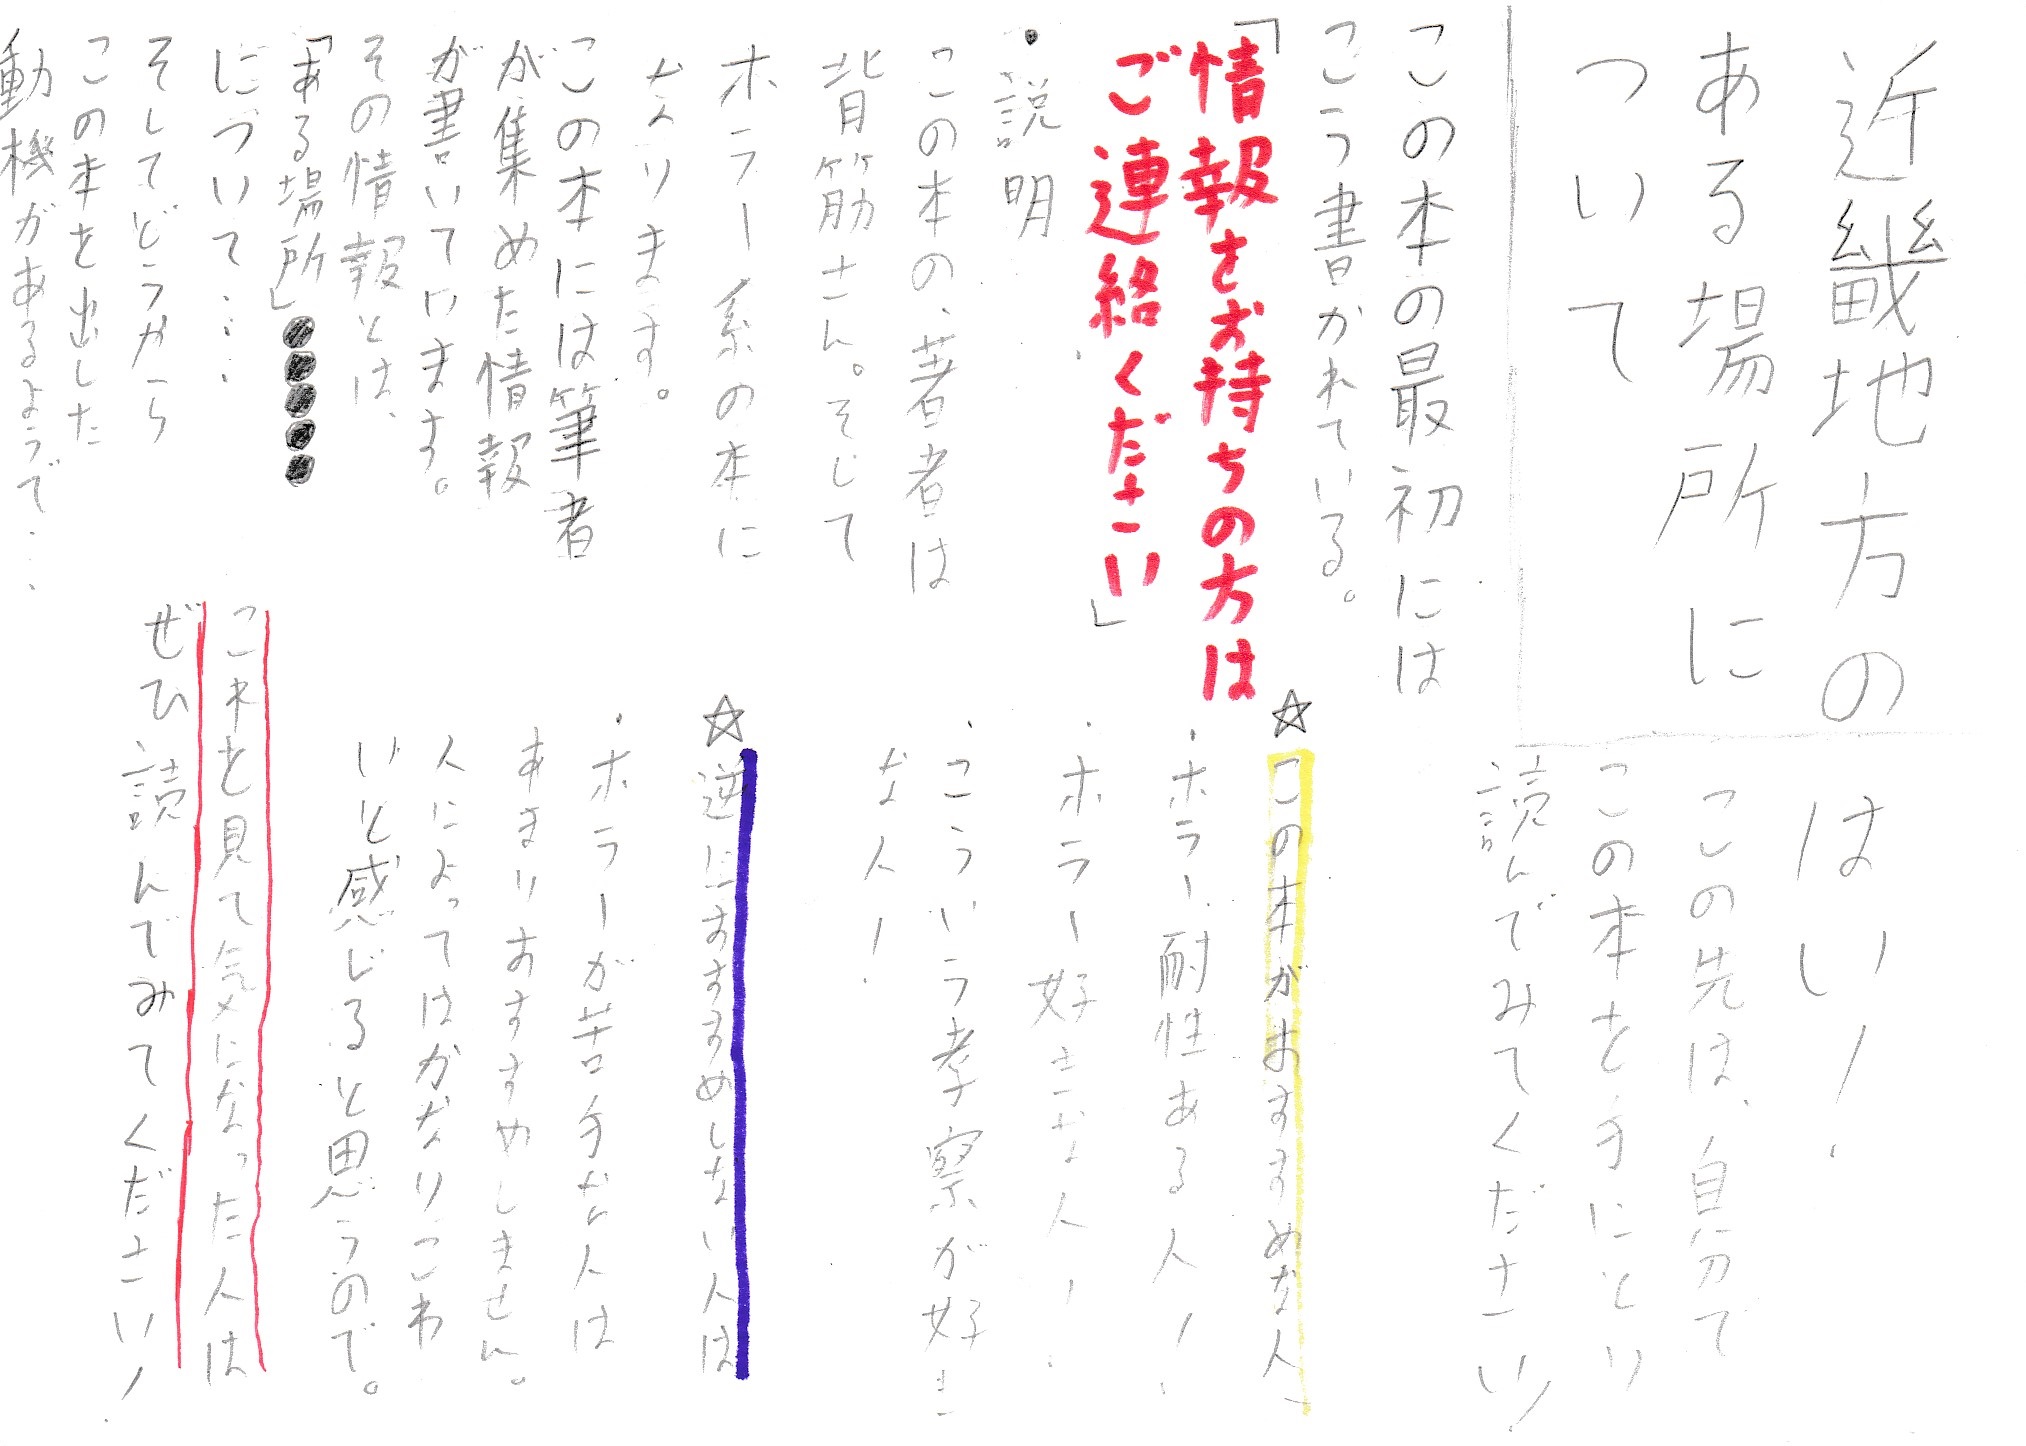 近畿地方の
ある場所に
ついて
この本の最初には
こう書かれている。
「情報をお持ちの方は
ご連絡ください」
・説明
この本の、著者は
背筋さん。そして
ホラー系の本に
なります。
この本には筆者
が集めた情報
が書いています。
その情報とは、
「ある場所」●●●●●
について…
そしてどうから
この本を出した
動機があるようで…
はい!
この先は、自分で
この本を手にとり
読んでみてください!
☆この本がおすすめな人
・ホラー耐性ある人!
・ホラー好きな人!
・こういう考察が好き
な人!
☆逆におすすめしない人は
・ホラーが苦手な人は
あまりおすすめしません。
人によってはかなりこわ
いと感じると思うので。
これを見て気になった人は
ぜひ読んでみてください!